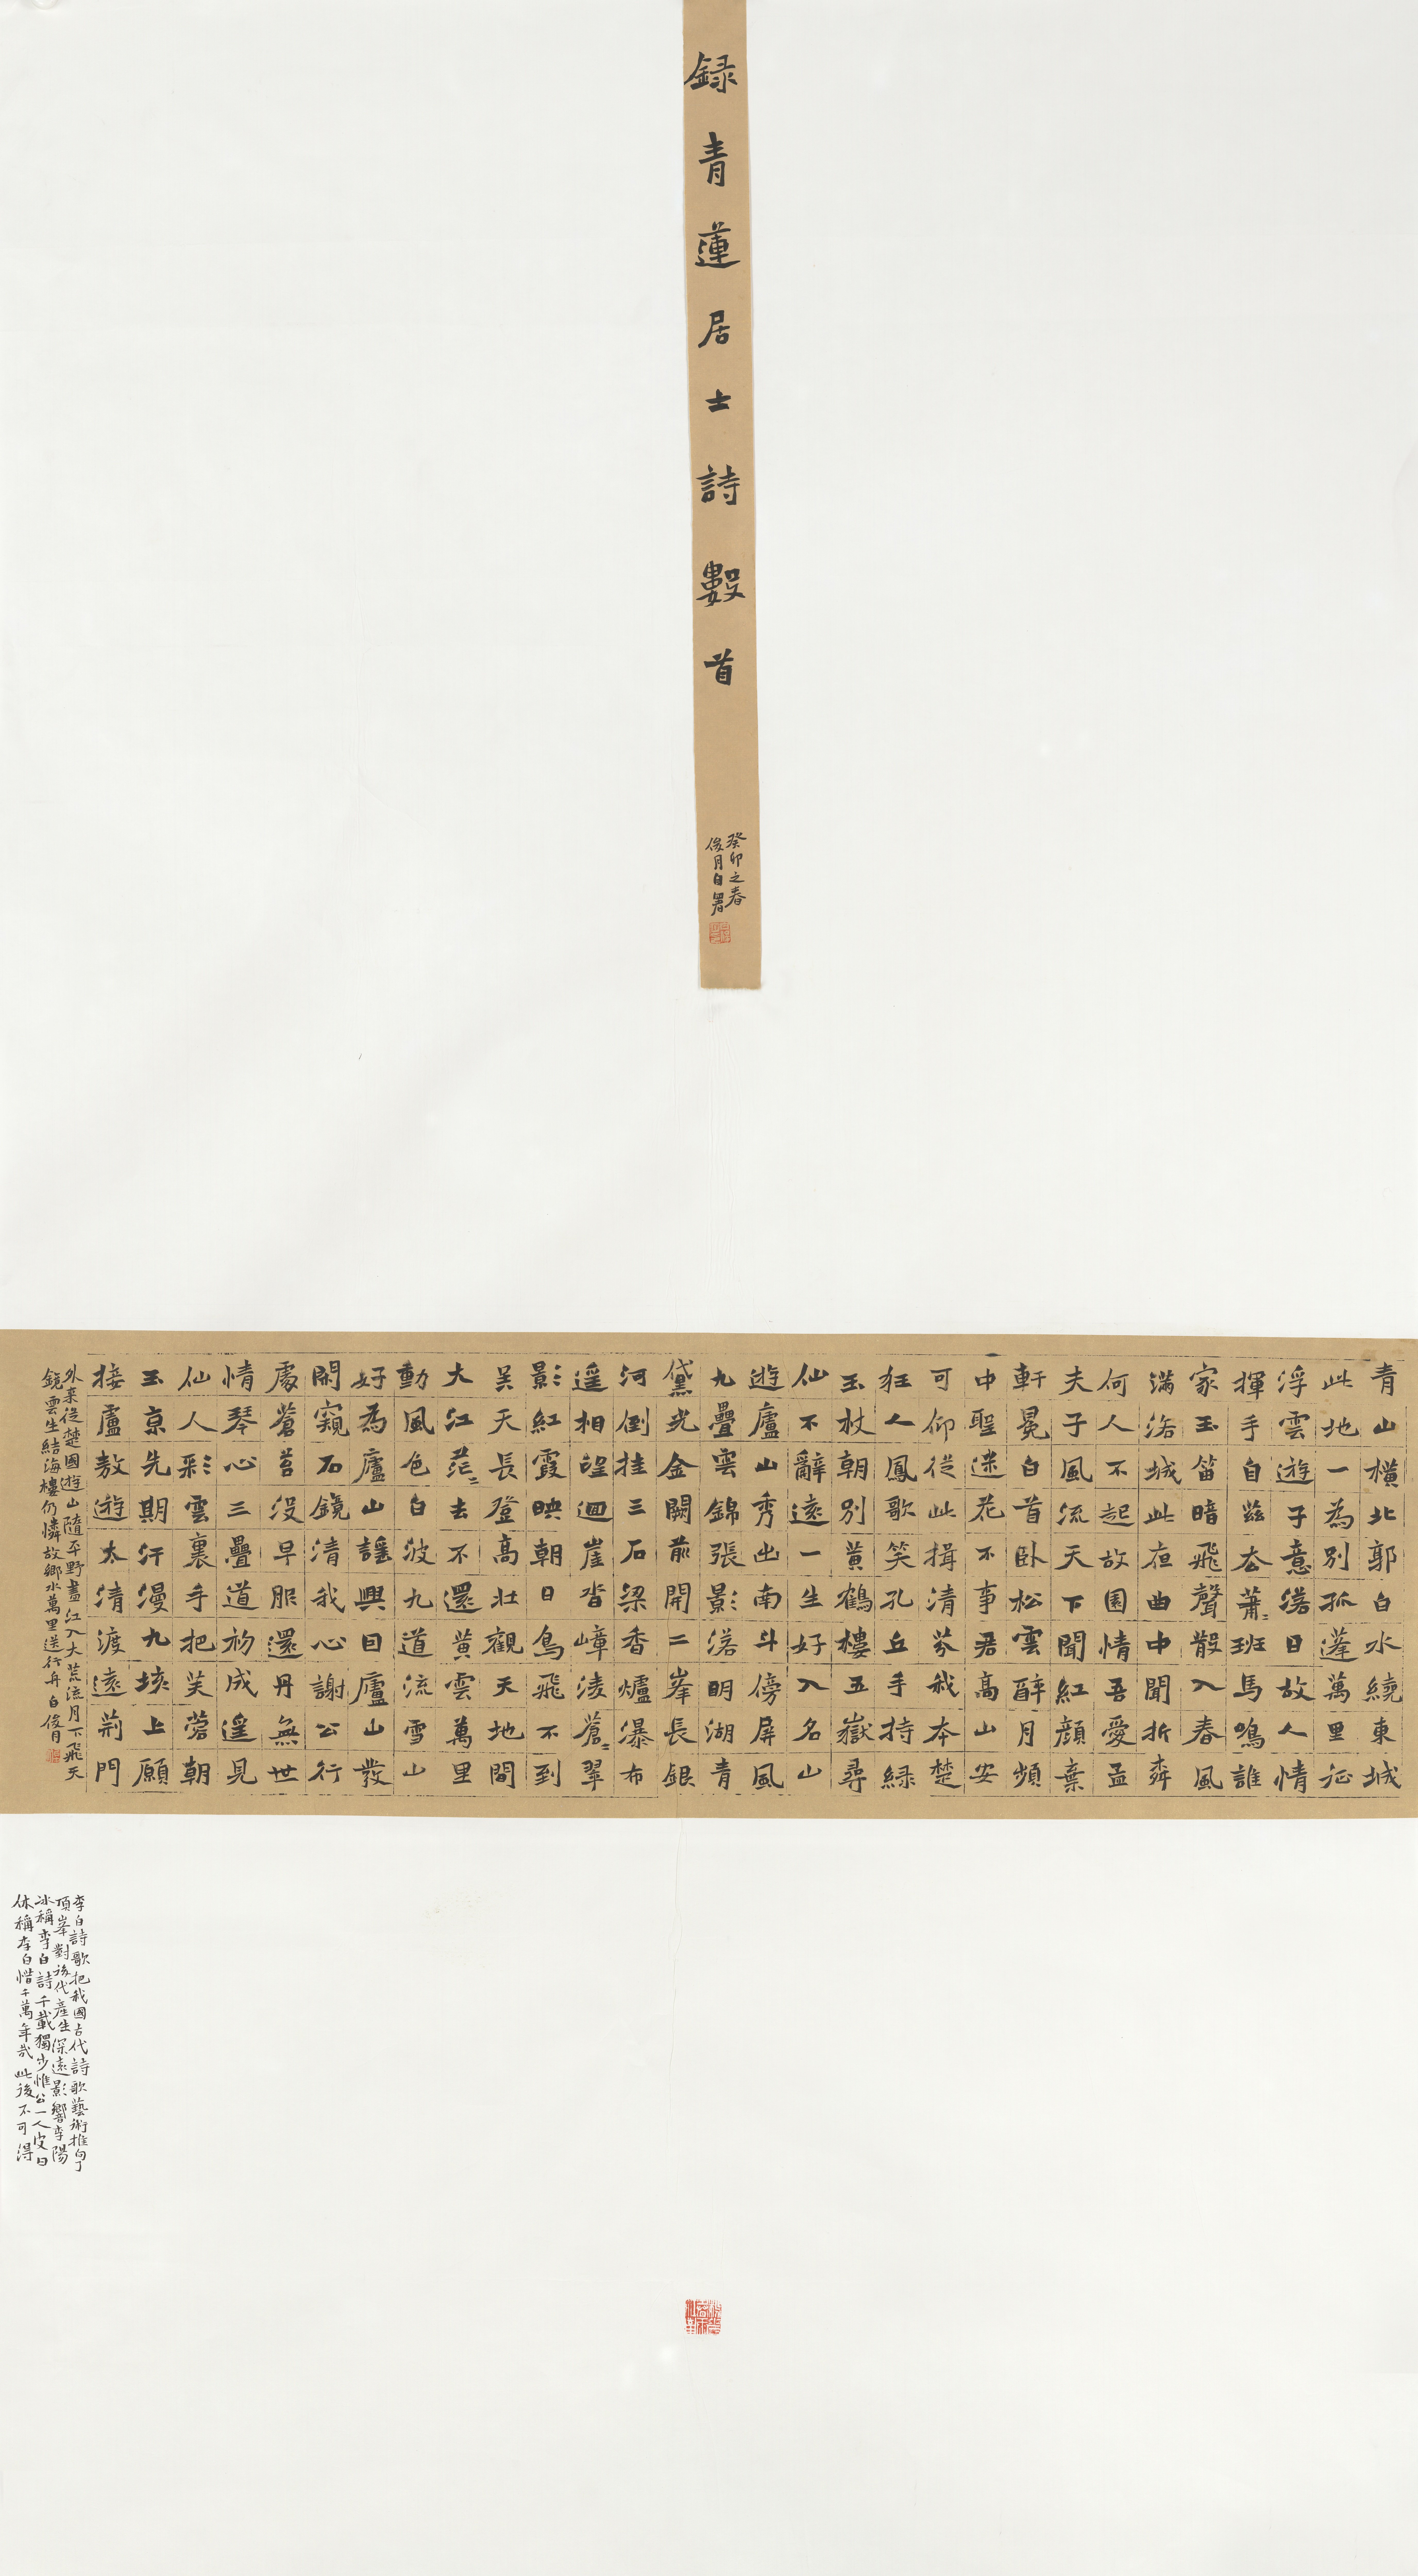 録青蓮居士詩數首
癸卯之春
俊月白署
青山橫北郭白水繞東城
此地一為別孤蓬萬里征
浮雲遊子意落日故人情
揮手自茲去蕭〻班馬鳴誰
家玉笛暗飛聲散入春風
滿洛城此夜曲中聞折桺
何人不起故園情吾愛孟
夫子風流天下聞紅顏棄
軒冕白首臥松雲醉月頻
中聖迷花不事君高山安
可仰從此揖清芬我本楚
狂人鳳歌笑孔丘手持綠
玉杖朝別黃鶴樓五嶽尋
仙不辭遠一生好入名山
遊廬山秀出南斗傍屏風
九疊雲錦張影落明湖青
黛光金闕前開二峯長銀
河倒挂三石梁香爐瀑布
遥相望迴崖沓嶂凌蒼〻翠
影紅霞映朝日鳥飛不到
吳天長登高壯觀天地間
大江茫〻去不還黃雲萬里
動風色白波九道流雪山
好為廬山謠興因廬山發
閑窺石鏡清我心謝公行
處蒼苔没早服還丹無世
情琴心三疊道初成遥見
仙人彩雲裏手把芙蓉朝
玉京先期汗漫九垓上願
接盧敖遊太清渡遠荊門
外来從楚國遊山隨平野盡江入大荒流月下飛天
鏡雲生結海樓仍憐故鄉水萬里送行舟 白俊月
李白詩歌把我國古代詩歌藝術推向了
頂峯對後代產生深遠影響李陽
冰稱李白詩千載獨步惟公一人皮日
休稱李白惜千萬年哉此後不可得